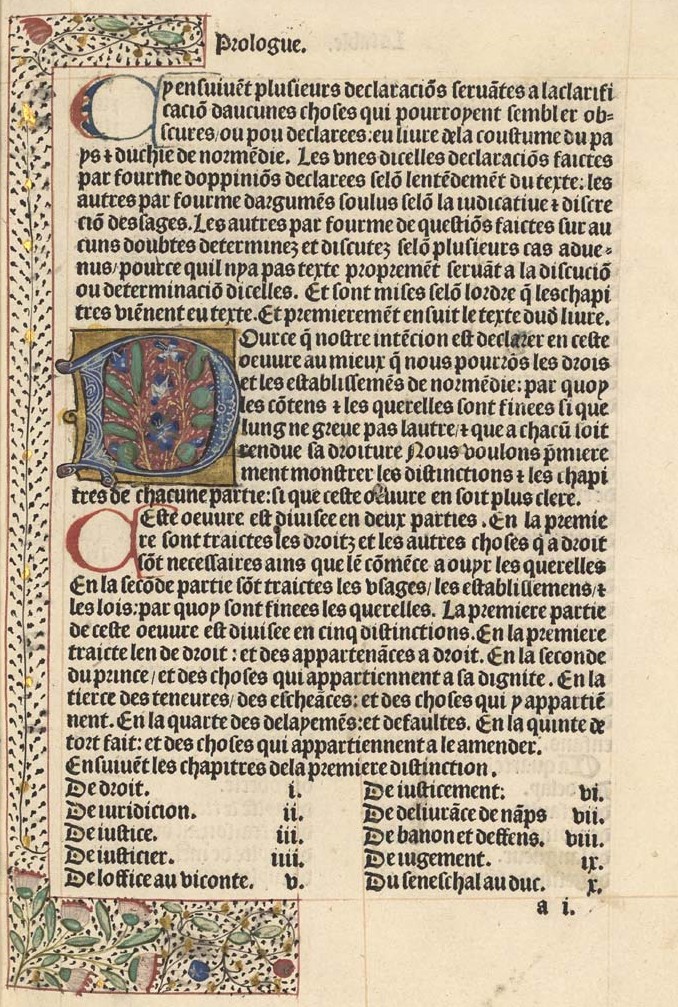 Prologue.
Cy ensuiuẽt plusieurs declaraciõs seruãtes a laclarifi
caciõ daucunes choses qui pourroyent sembler ob=
scures/ou pou declarees:eu liure dela coustume du pa
ys ⁊ duchie de normẽdie. Les vnes dicelles declaraciõs faictes
par fourme doppiniõs declarees selõ lentẽdemẽt du texte: les
autres par fourme dargumẽs soulus selõ la iudicatiue ⁊ discre
ciõ des sages. Les autres par fourme de questiõs faictes sur au
cuns doubtes determinez et discutez selõ plusieurs cas adue=
nus/pource quil nya pas texte propremẽt seruãt a la discuciõ
ou determinaciõ dicelles. Et sont mises selõ lordre q̃ les chapi
tres viẽnent eu texte. Et premieremẽt ensuit le texte dud liure.
Pource q̃ nostre intẽcion est declarer en ceste
oeuure au mieux q̃ nous pourrõs les drois
et les establissemẽs de normẽdie: par quoy
les cõtens ⁊ les querelles sont finees si que
lung ne greue pas lautre/⁊ que a chacũ soit
rendue sa droiture Nous voulons p̃miere
ment monstrer les distinctions ⁊ les chapi
tres de chacune partie:si que ceste oeuure en soit plus clere.
Ceste oeuure est diuisee en deux parties. En la premie
re sont traictes les droitz et les autres choses q̃ a droit
sõt necessaires ains que lẽ cõmẽce a ouyr les querelles
En la secõde partie sõt traictes les vsages/ les establissemens/⁊
les lois:par quoy sont finees les querelles. La premiere partie
de ceste oeuure est diuisee en cinq distinctions. En la premiere
traicte len de droit : et des appartenãces a droit. En la seconde
du prince/ et des choses qui appartiennent a sa dignite. En la
tierce des teneures/ des escheãces: et des choses qui y appartiẽ
nent. En la quarte des delayemẽs:et defaultes. En la quinte de
tort fait: et des choses qui appartiennent a le amender.
Ensuiuẽt les chapitres dela premiere distinction.
De droit. i.
De iuridicion. ii.
De iustice. iii.
De iusticier. iiii.
De loffice au viconte. v.
De iusticement: vi.
De deliurãce de nãps vii.
De banon et deffens. viii.
De iugement. ix.
Du seneschal au duc. x.
a i.